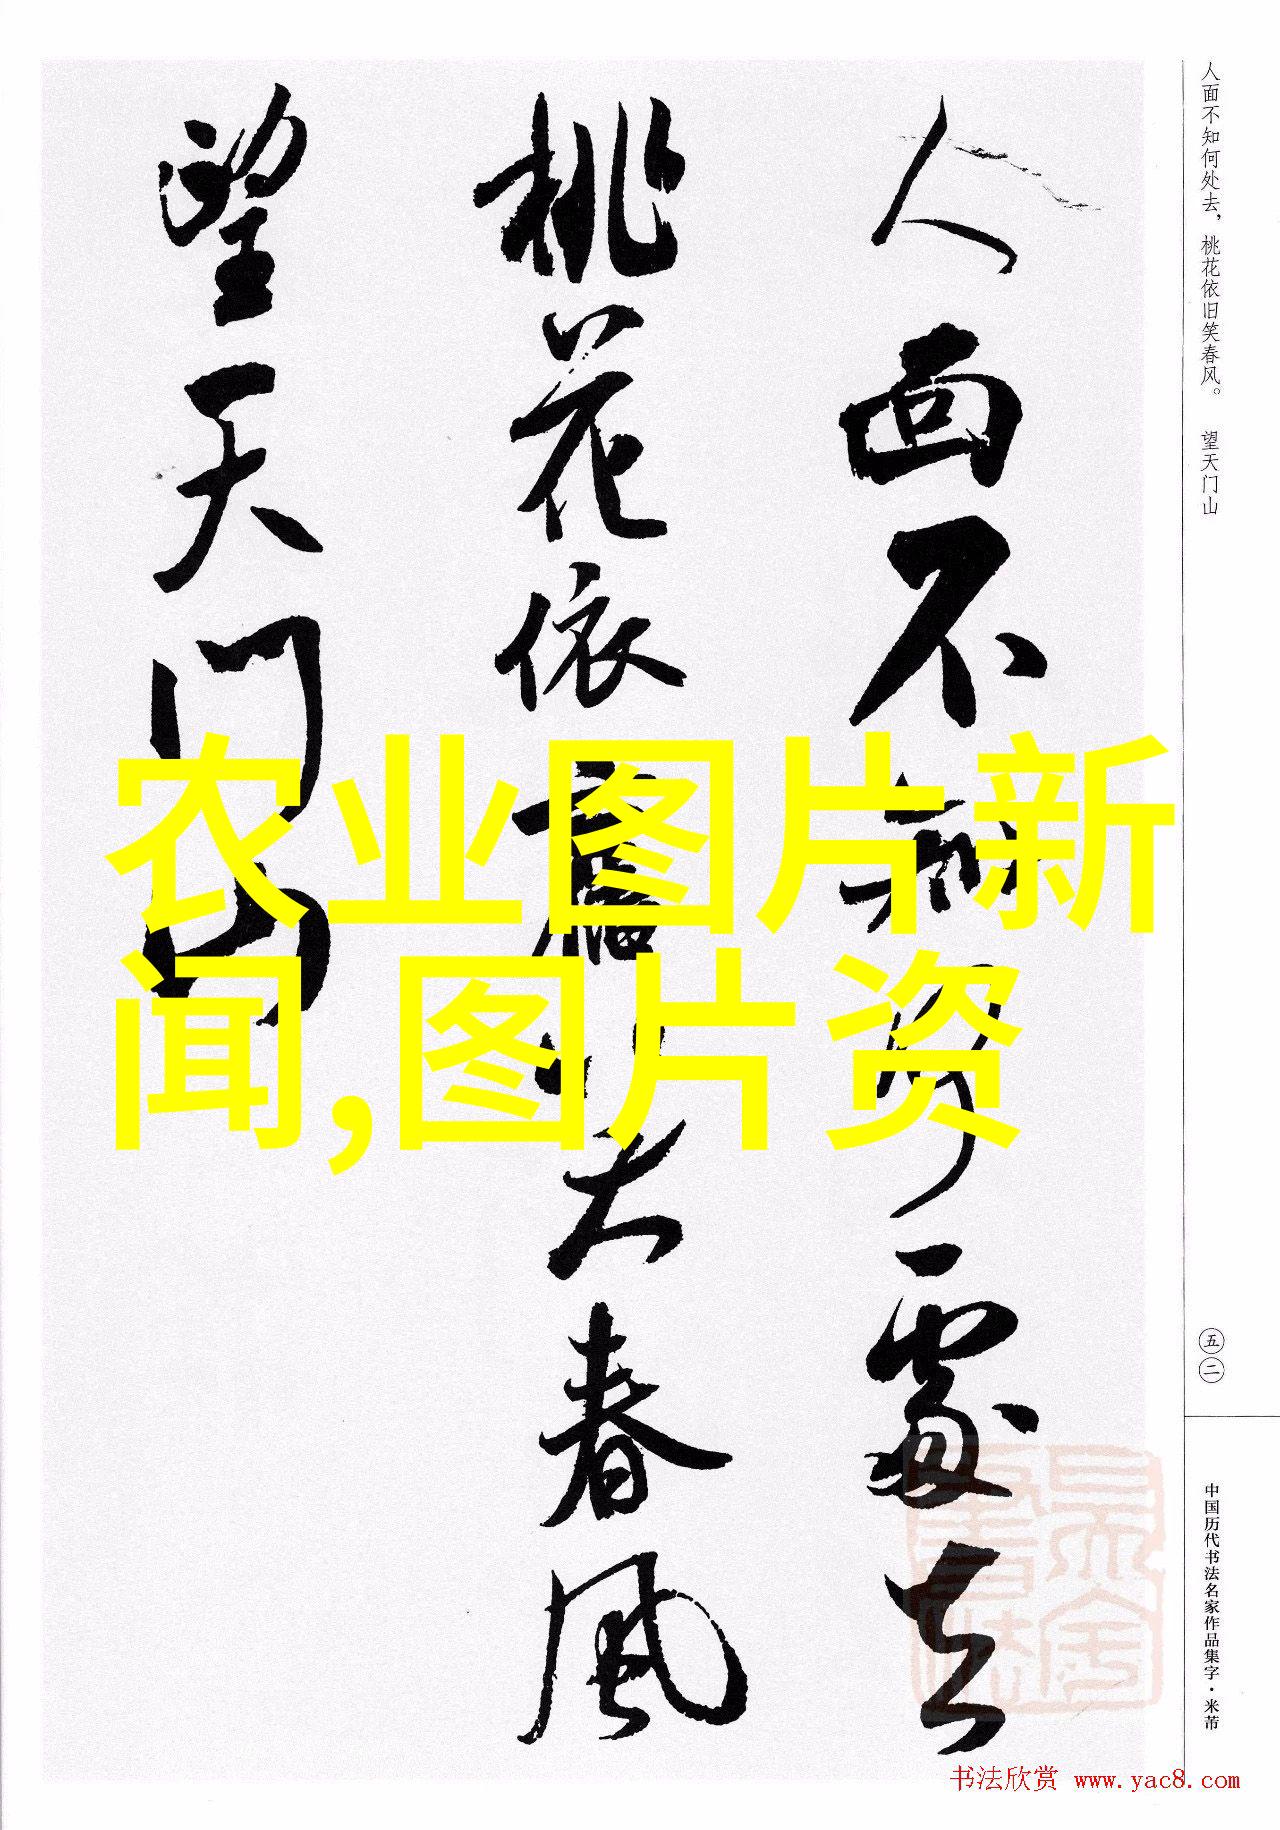 人面不知何處去
桃花依舊笑春風
望天门山
农业图片新
闻,图片资
人面不知何处去，桃花依旧笑春风。 望天门山
五二
中国历代书法名家作品集字·米芾
书法欣赏 www.yac8.com